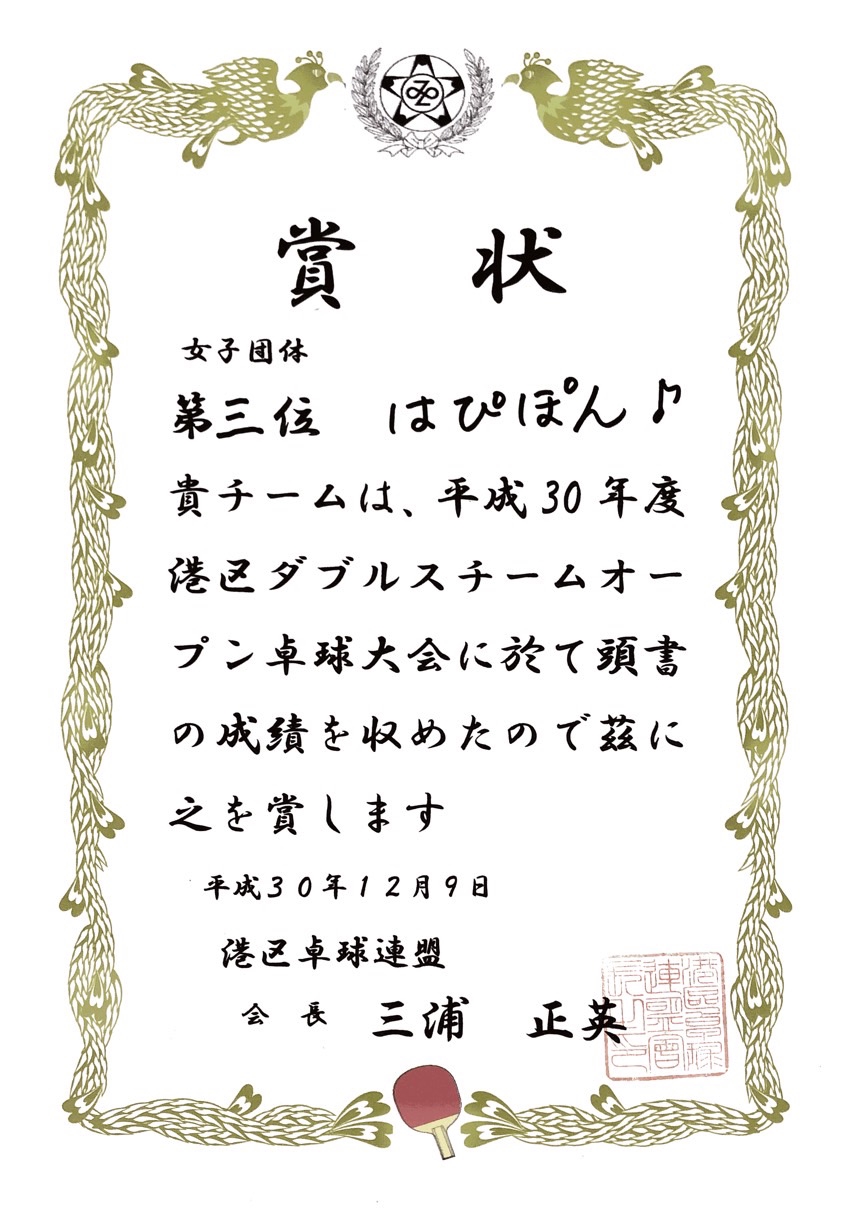 賞 状
女子団体
第三位 はぴぽん♪
貴チームは、平成30年度
港区ダブルスチームオー
プン卓球大会に於て頭書
の成績を収めたので茲に
之を賞します
平成30年12月9日
港区卓球連盟
会 長 三浦 正英